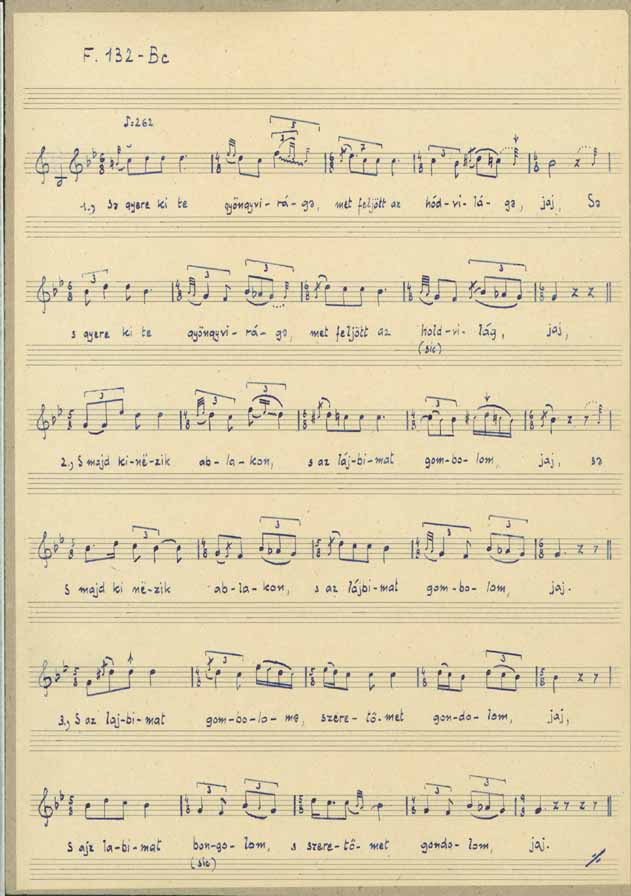 F. 132 - Bc
♪=262
1., Sə gyere ki te gyöngyvi-rá-gə, met feljött az hód-vi-lá-gə, jaj, Sə
s gyere ki te gyöngyvi-rá-gə, met feljött az hold-vi-lág, jaj,
(sic)
2., S majd ki-në-zik ab-la-kon, s az láj-bi-mat gom-bo-lom, jaj, sə
S majd ki në-zik ab-la-kon, s az lájbi-mat gom-bo-lom, jaj.
3., S az laj-bi-mat gom-bo-lo-mə, szere-tő-met gon-do-lom, jaj,
S ajz la-bi-mat bon-go-lom, s szere-tő-met gondo-lom, jaj.
(sic)